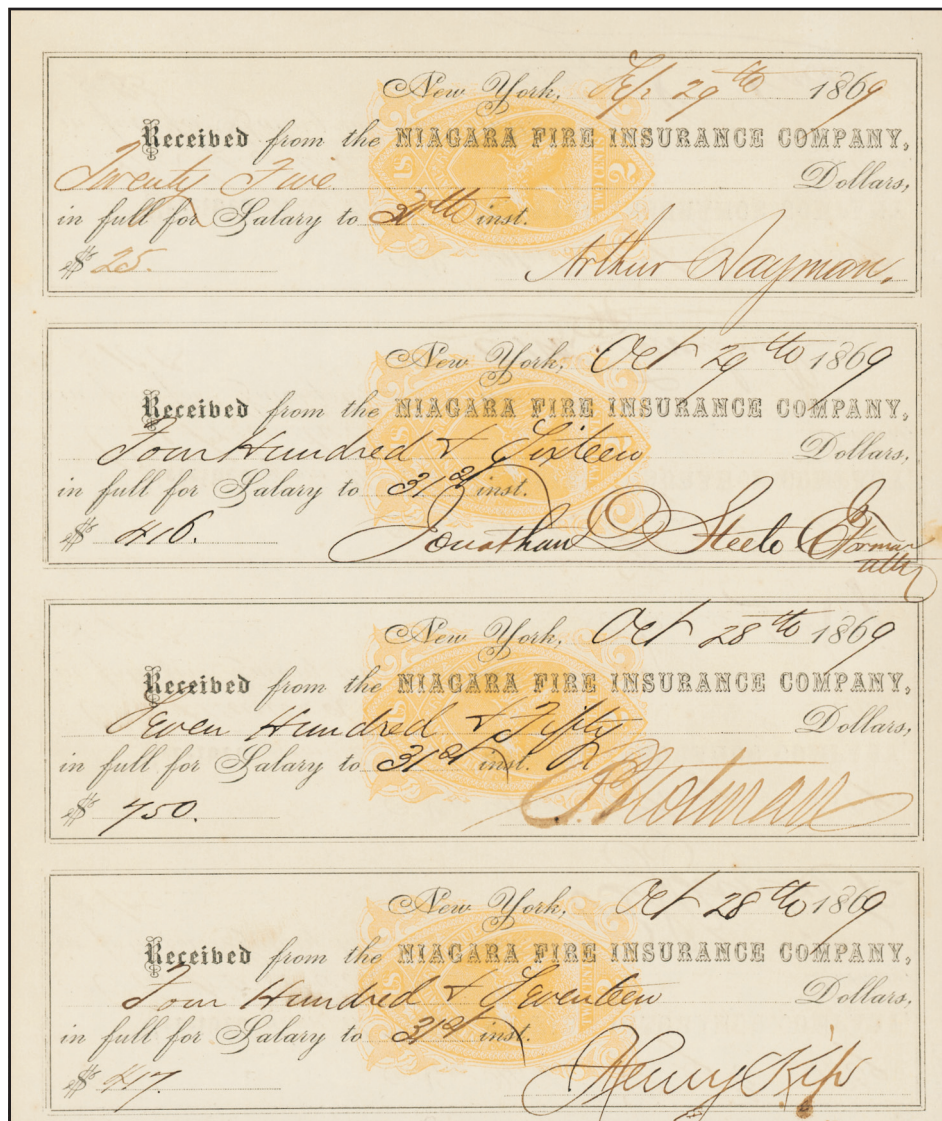 New York, Sep 29th 1869
Received from the NIAGARA FIRE INSURANCE COMPANY,
Twenty Five Dollars,
in full for Salary to 30th inst.
$ 25.
Arthur Wayman.
New York, Oct 29th 1869
Received from the NIAGARA FIRE INSURANCE COMPANY,
Four Hundred & Sixteen Dollars,
in full for Salary to 31st inst.
$ 416.
Jonathan D Steele
atty
New York, Oct 28th 1869
Received from the NIAGARA FIRE INSURANCE COMPANY,
Seven Hundred & Fifty Dollars,
in full for Salary to 31st inst.
$ 750.
P Notman
New York, Oct 28th 1869
Received from the NIAGARA FIRE INSURANCE COMPANY,
Four Hundred & Seventeen Dollars,
in full for Salary to 31st inst.
$ 417.
Henry Kip